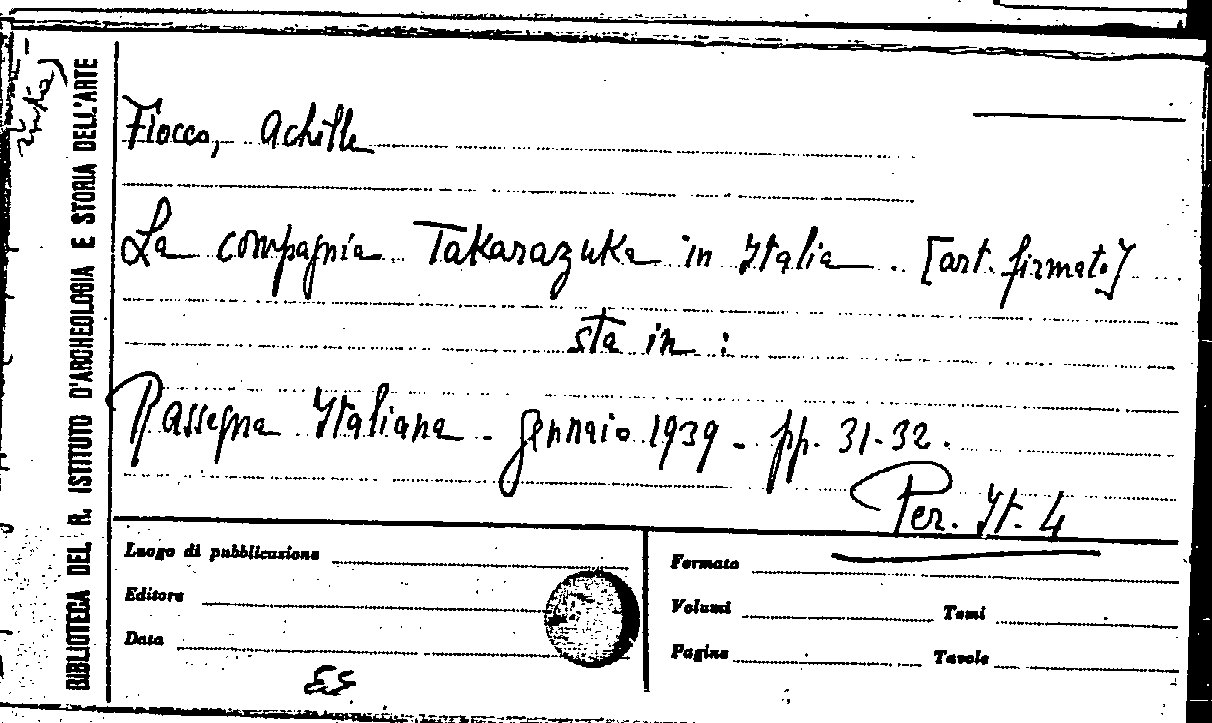 BIBLIOTECA DEL R. ISTITUTO D'ARCHEOLOGIA E STORIA DELL'ARTE
Fiocco, Achille
La compagnia Takarazuka in Italia. [art. firmato]
sta in :
Rassegna Italiana - gennaio 1939 - pp. 31-32.
Per. It. 4
Luogo di pubblicazione
Editore
Data
Formato
Volumi Tomi
Pagine Tavole